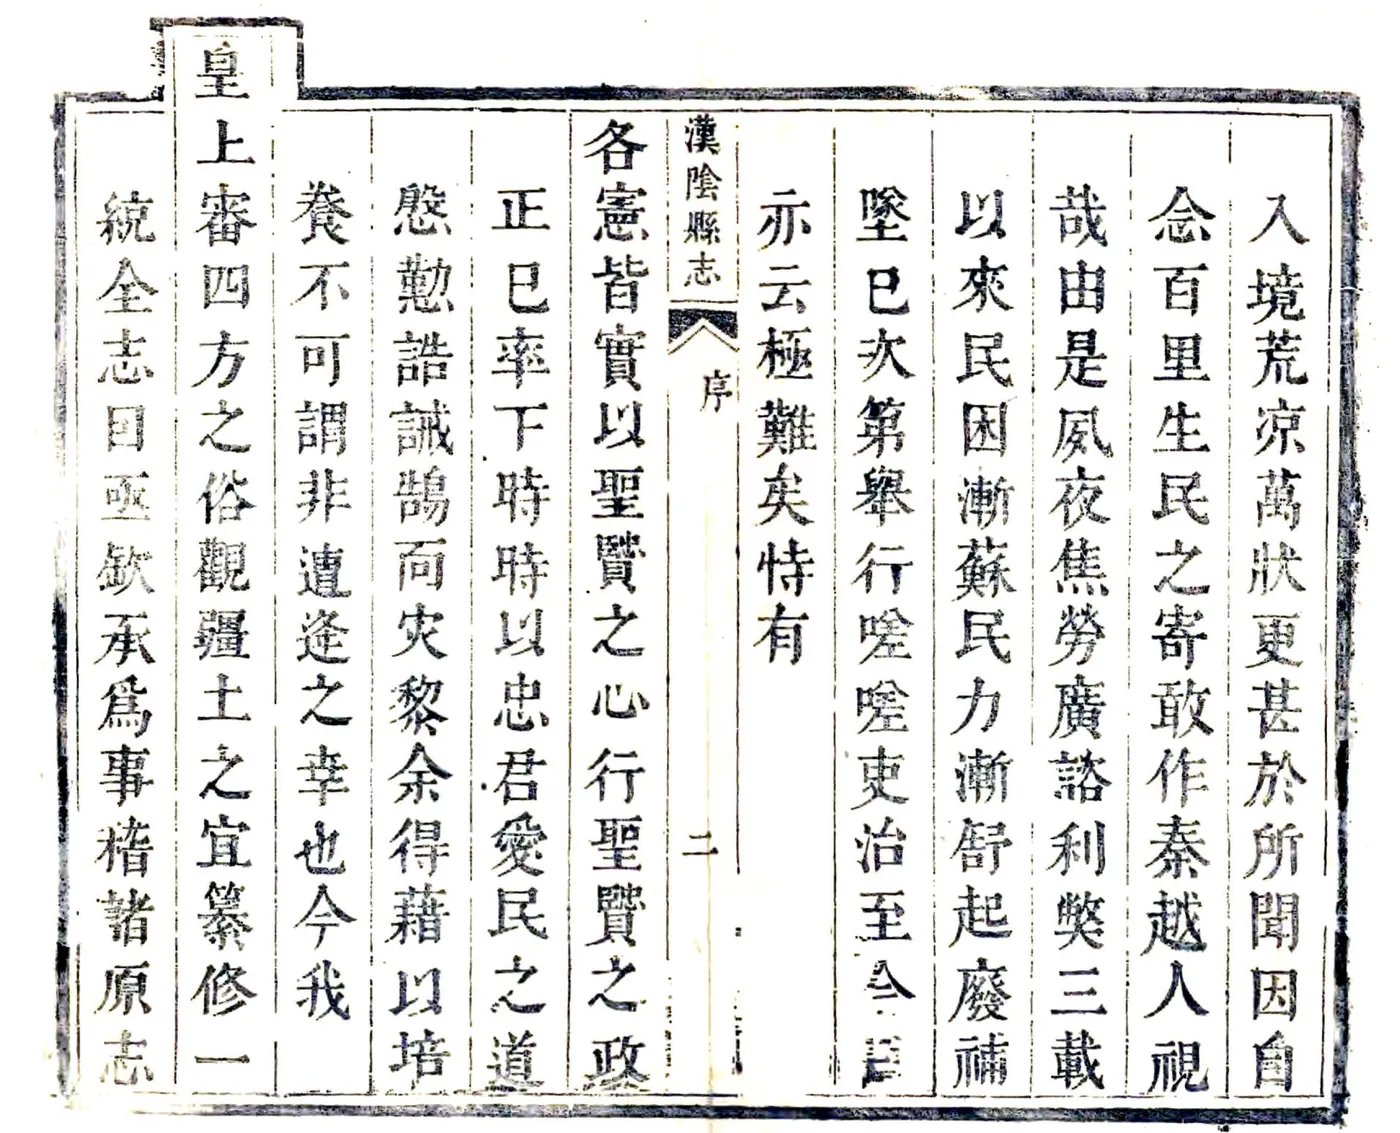 入境荒凉萬狀更甚於所聞因自
念百里生民之寄敢作秦越人視
哉由是夙夜焦勞廣諮利獘三載
以來民困漸蘇民力漸舒起廢補
墜已次第舉行嗟嗟吏治至今日
亦云極難矣恃有
漢陰縣志
序
二
各憲皆實以聖賢之心行聖賢之政
正已率下時時以忠君愛民之道
慇懃誥誡鵠而灾黎余得藉以培
養不可謂非遭逢之幸也今我
皇上審四方之俗觀疆土之宜纂修一
統全志目亟欽承爲事稽諸原志